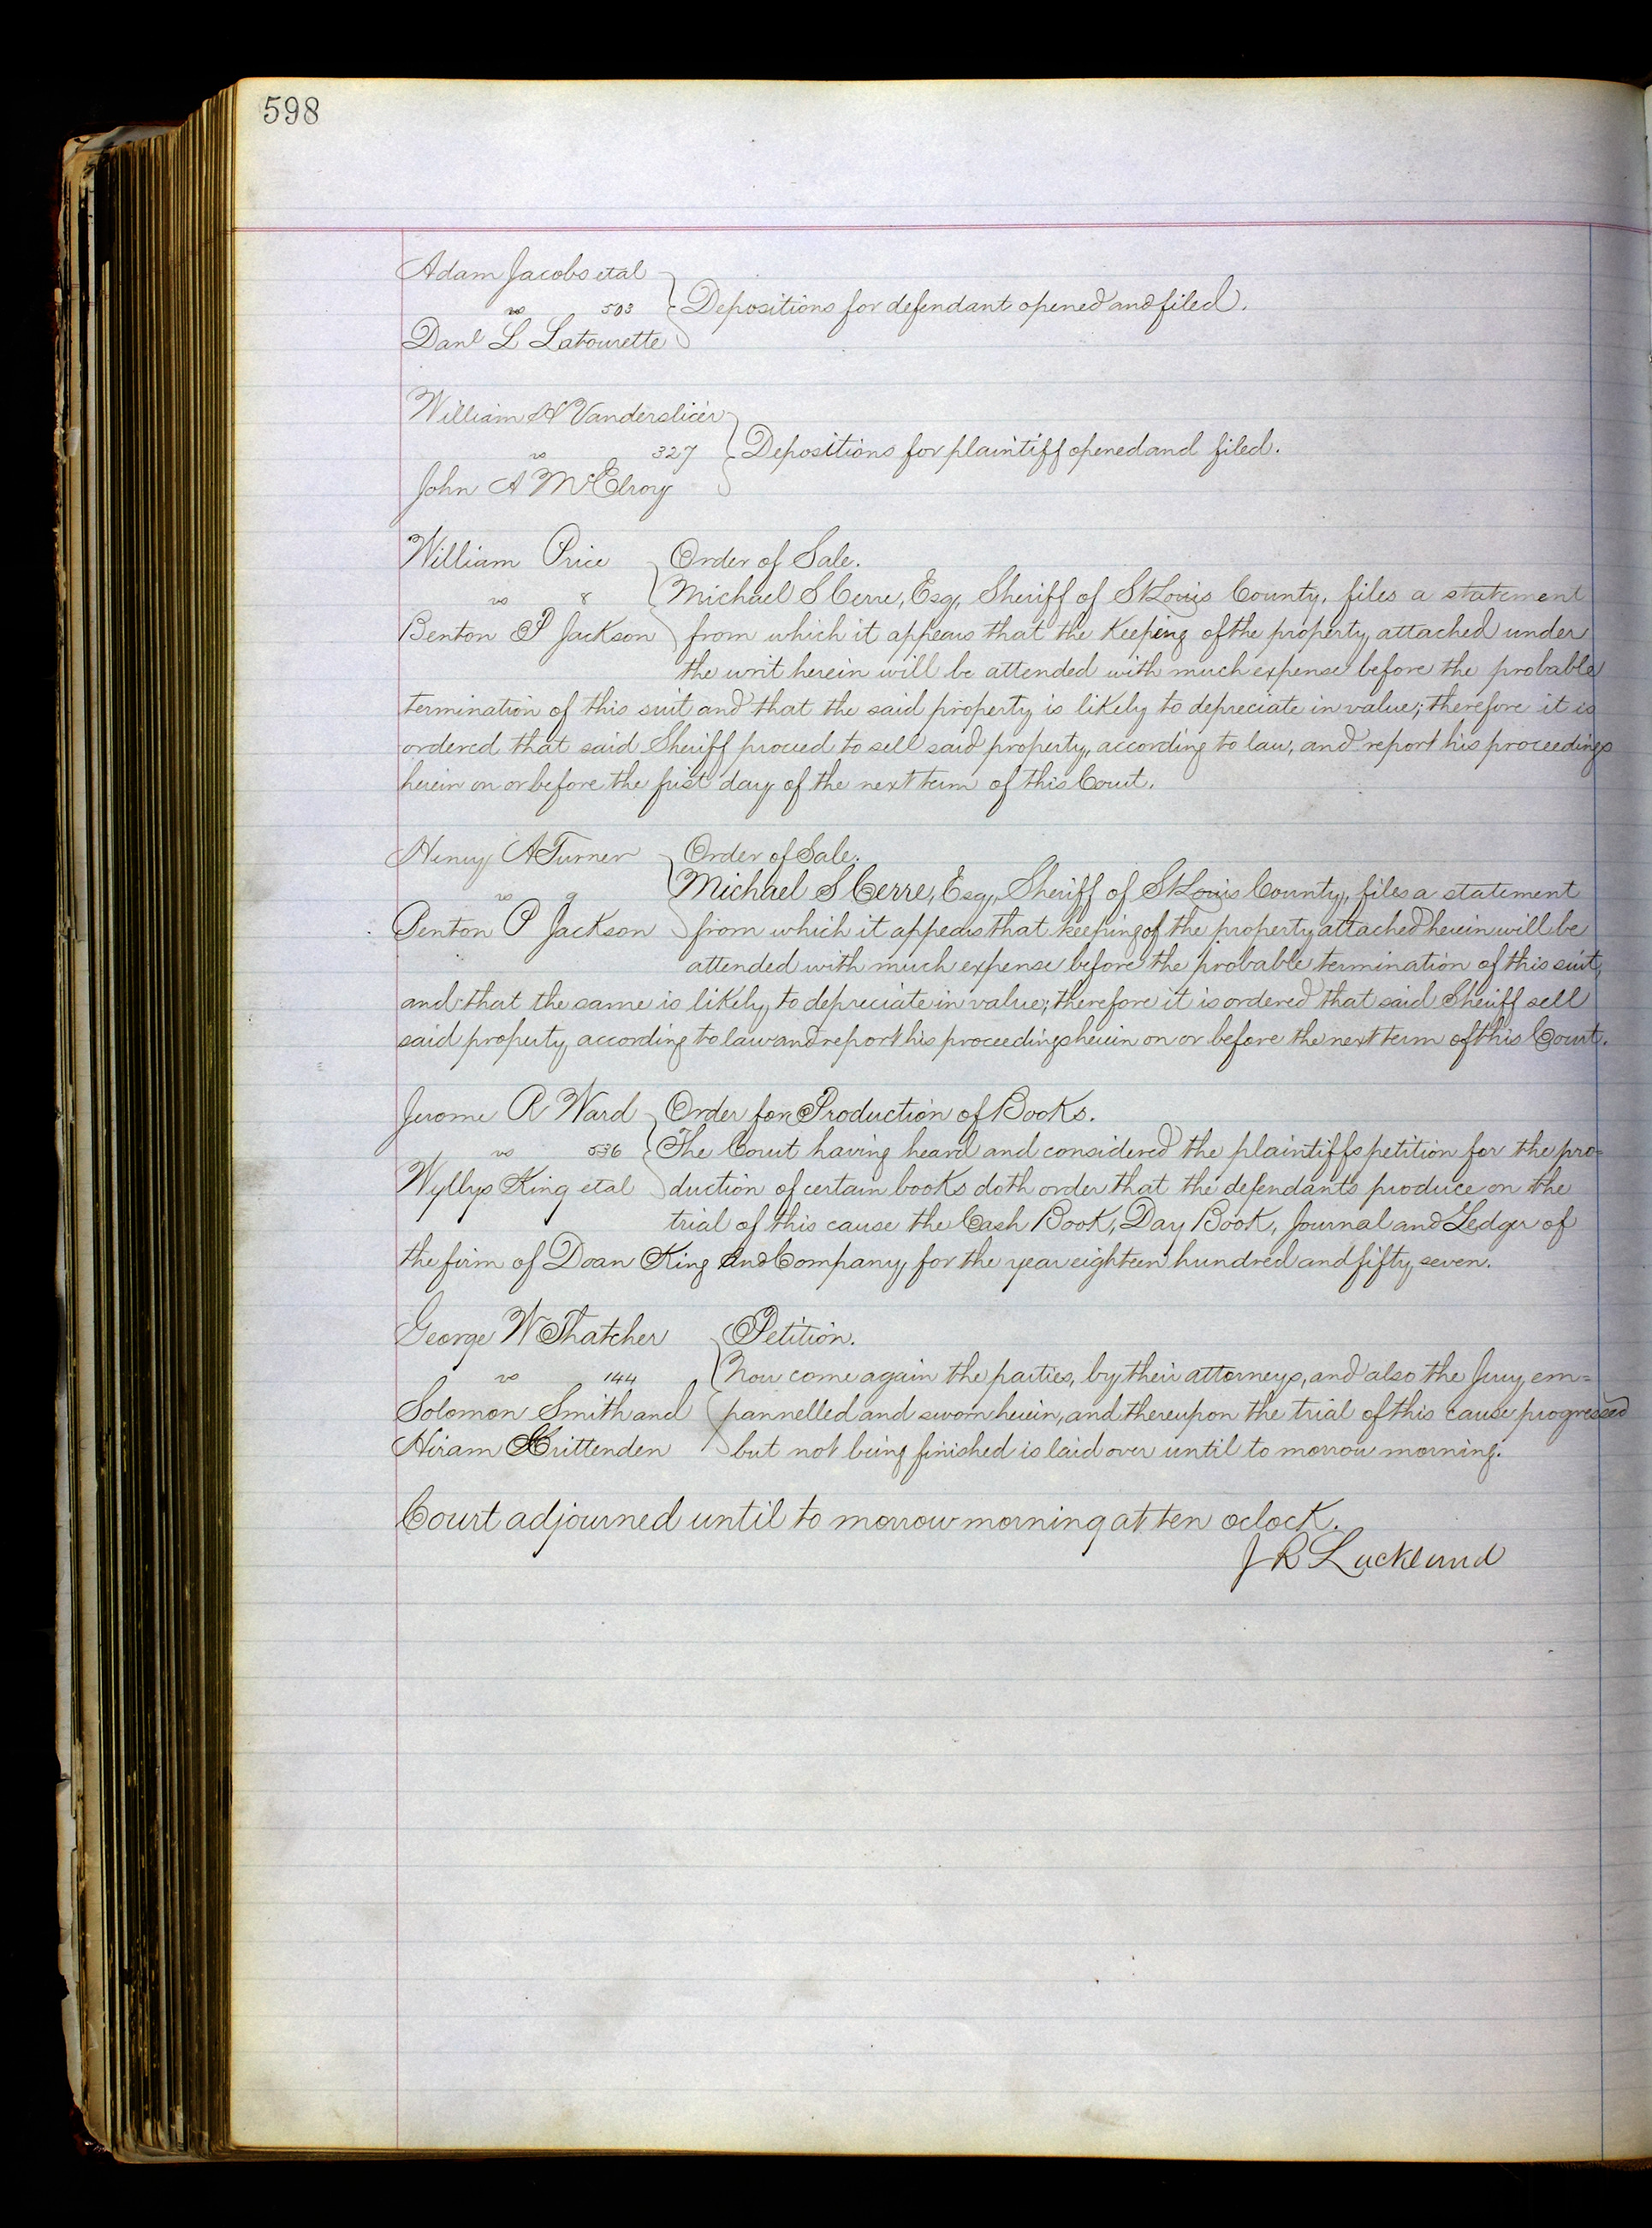 598
Adam Jacobs etal
vs 503 Depositions for defendant opened and filed.
Danl L Latourette
William H Vanderslicer
vs 327 Depositions for plaintiff opened and filed.
John A McElroy
William Price Order of Sale.
vs 8 Michael S Cerre, Esq, Sheriff of St Louis County, files a statement
Benton P Jackson from which it appears that the keeping of the property attached under
the writ herein will be attended with much expense before the probable
termination of this suit and that the said property is likely to depreciate in value; therefore it is
ordered that said Sheriff proceed to sell said property, according to law, and report his proceedings
herein on or before the first day of the next term of this Court.
Henry A Turner Order of Sale.
vs 9 Michael S Cerre, Esq, Sheriff of St Louis County, files a statement
Benton P Jackson from which it appears that keeping of the property attached herein will be
attended with much expense before the probable termination of this suit,
and that the same is likely to depreciate in value; therefore it is ordered that said Sheriff sell
said property according to law and report his proceedings herein on or before the next term of this Court.
Jerome R Ward Order for Production of Books.
vs 536 The Court having heard and considered the plaintiffs petition for the pro=
Wyllys King etal duction of certain books doth order that the defendants produce on the
trial of this cause the Cash Book, Day Book, Journal and Ledger of
the firm of Doan King and Company, for the year eighteen hundred and fifty seven.
George W Thatcher Petition.
vs 144 Now come again the parties, by their attorneys, and also the Jury em=
Solomon Smith and pannelled and sworn herein, and thereupon the trial of this cause progressed
Hiram Crittenden but not being finished is laid over until to morrow morning.
Court adjourned until to morrow morning at ten oclock.
J R Lackland